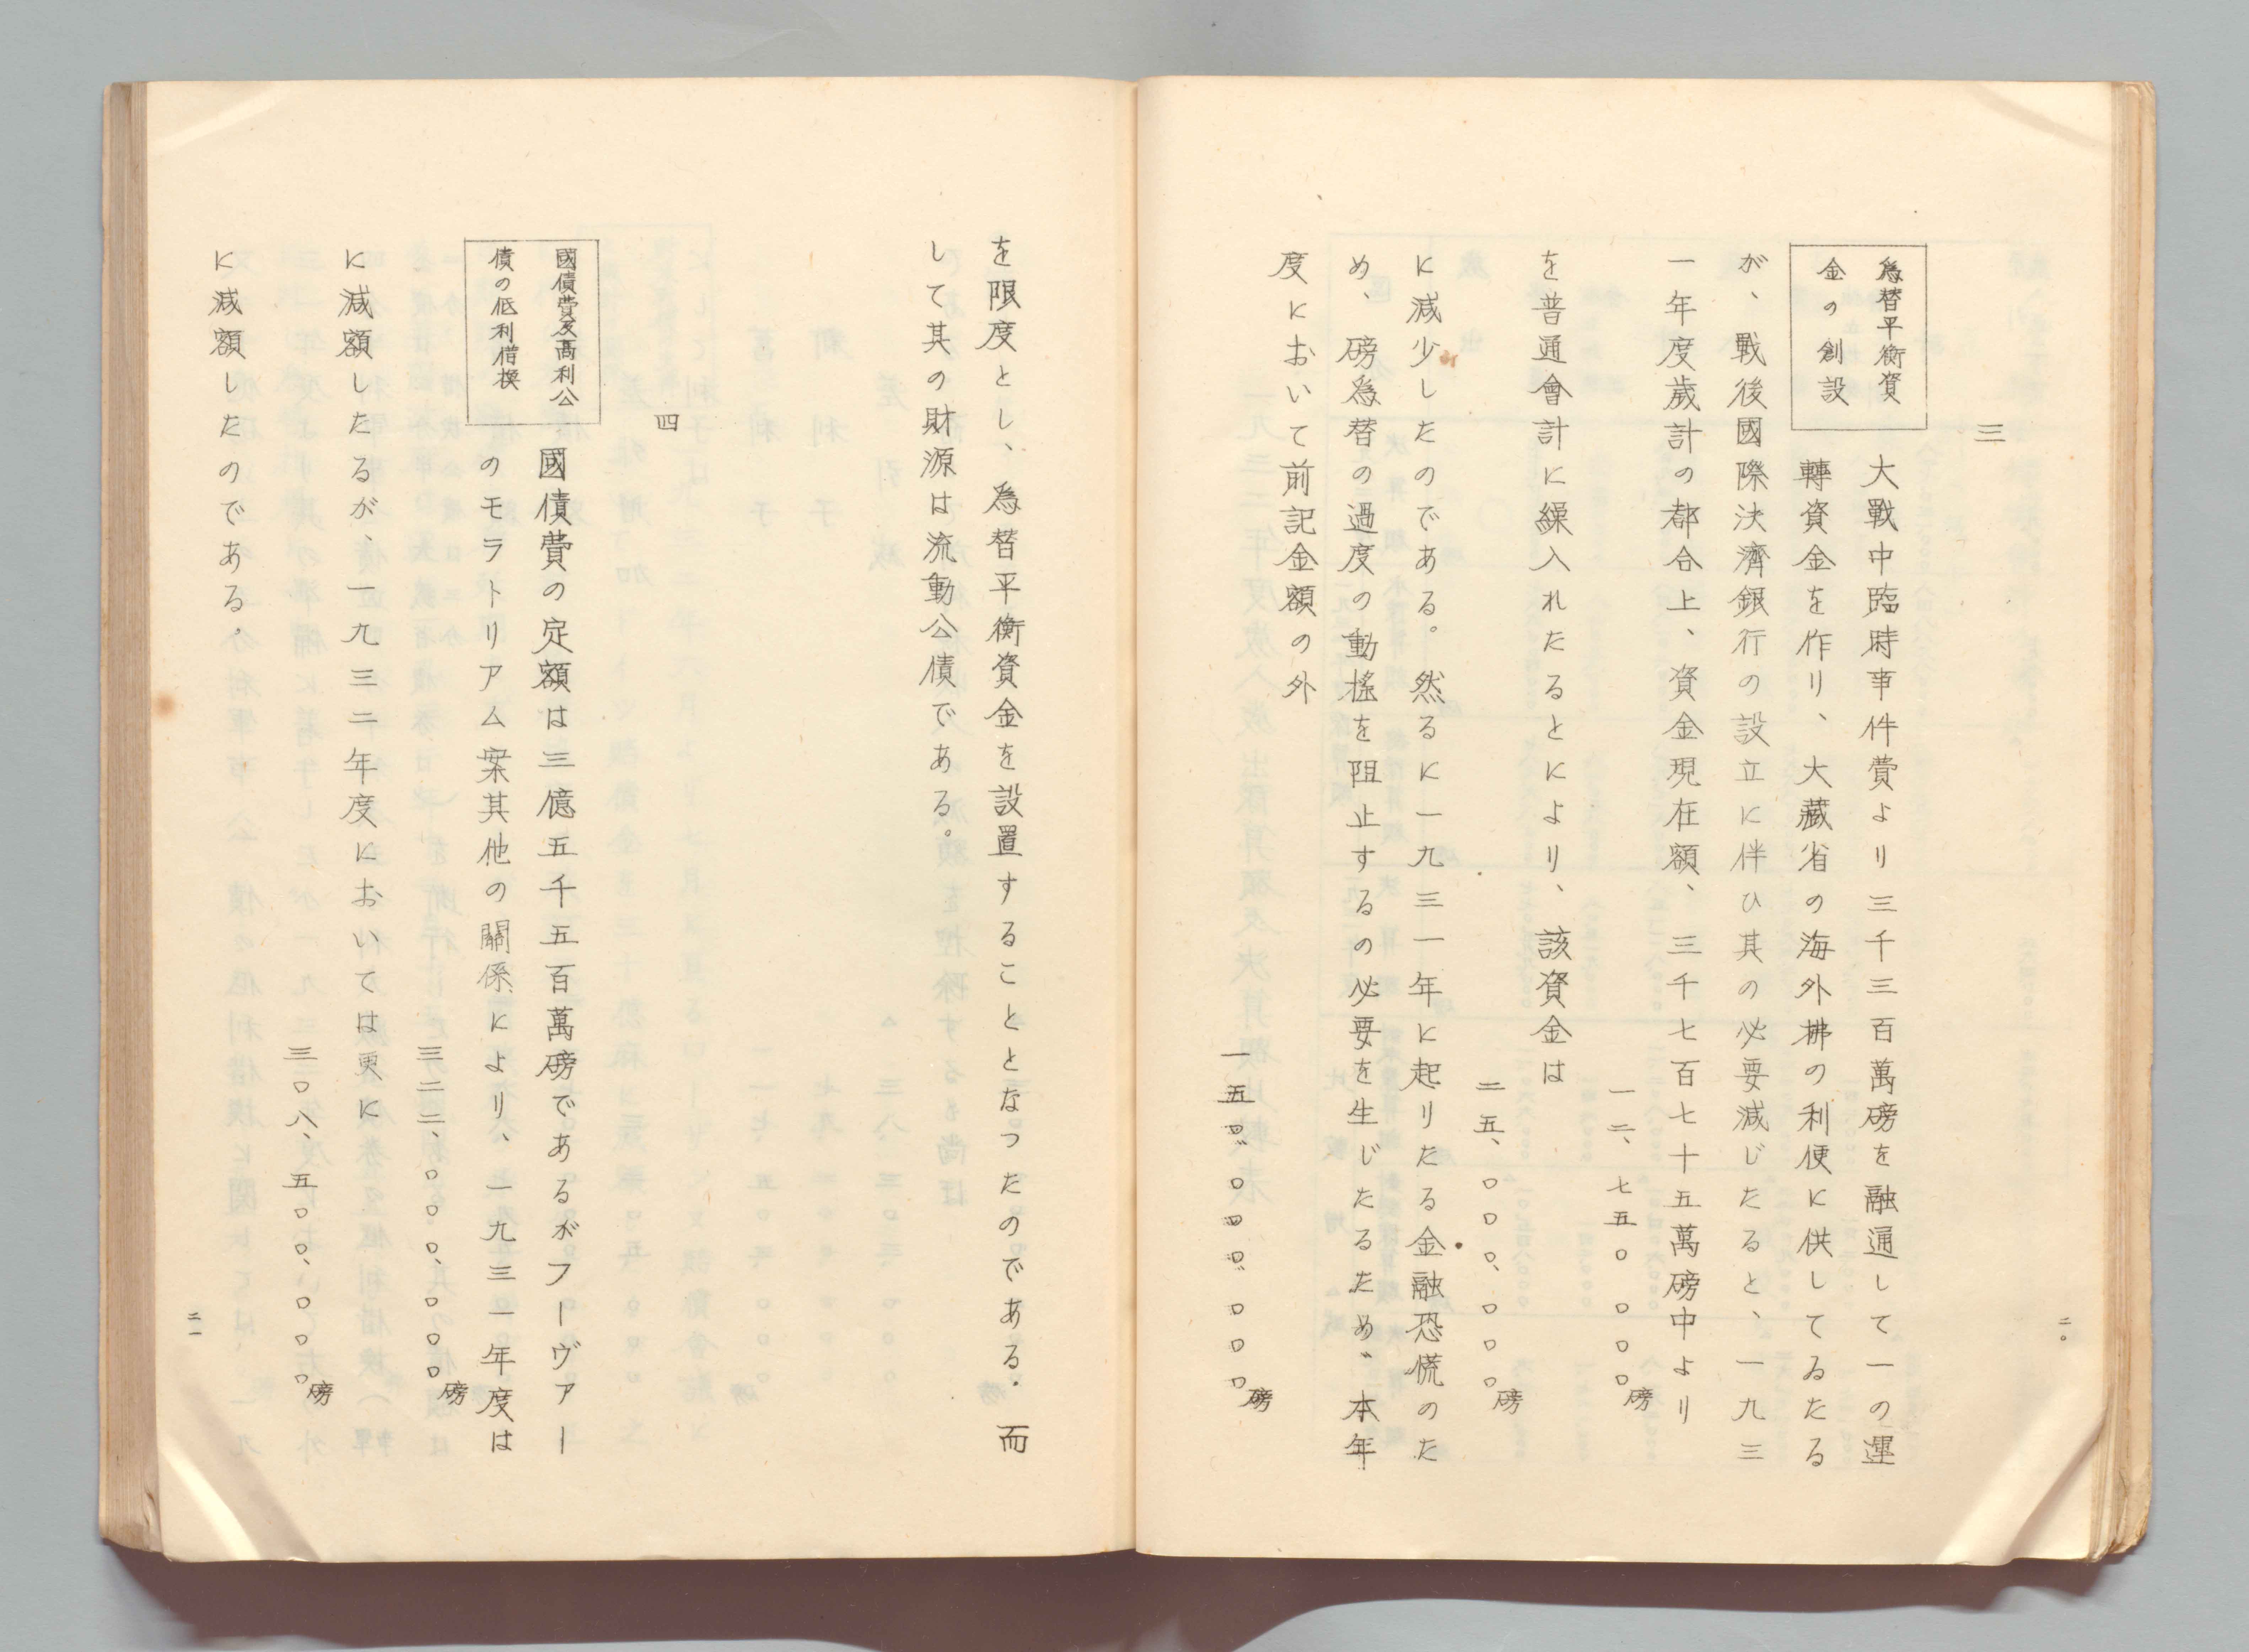 三
爲替平衡資
金の創設
大戰中臨時事件費より三千三百萬磅を融通して一の運
轉資金を作り、大藏省の海外拂の利便に供してゐたる
が、戰後國際決濟銀行の設立に伴ひ其の必要減じたると、一九三
一年度歲計の都合上、資金現在額、三千七百七十五萬磅中より
一二、七五〇、〇〇〇磅
を普通會計に繰入れたるとにより、該資金は
二五、〇〇〇、〇〇〇磅
に減少したのである。然るに一九三一年に起りたる金融恐慌のた
め、磅爲替の過度の動搖を阻止するの必要を生じたるため、本年
度において前記金額の外
一五〇、〇〇〇、〇〇〇磅
二〇
を限度とし、爲替平衡資金を設置することとなつたのである。而
して其の財源は流動公債である。
四
國債費及高利公
債の低利借換
國債費の定額は三億五千五百萬磅であるがフーヴァー
のモラトリアム案其他の關係により、一九三一年度は
三二二、〇〇〇、〇〇〇磅
に減額したるが、一九三二年度においては更に
三〇八、五〇〇、〇〇〇磅
に減額したのである。
二一